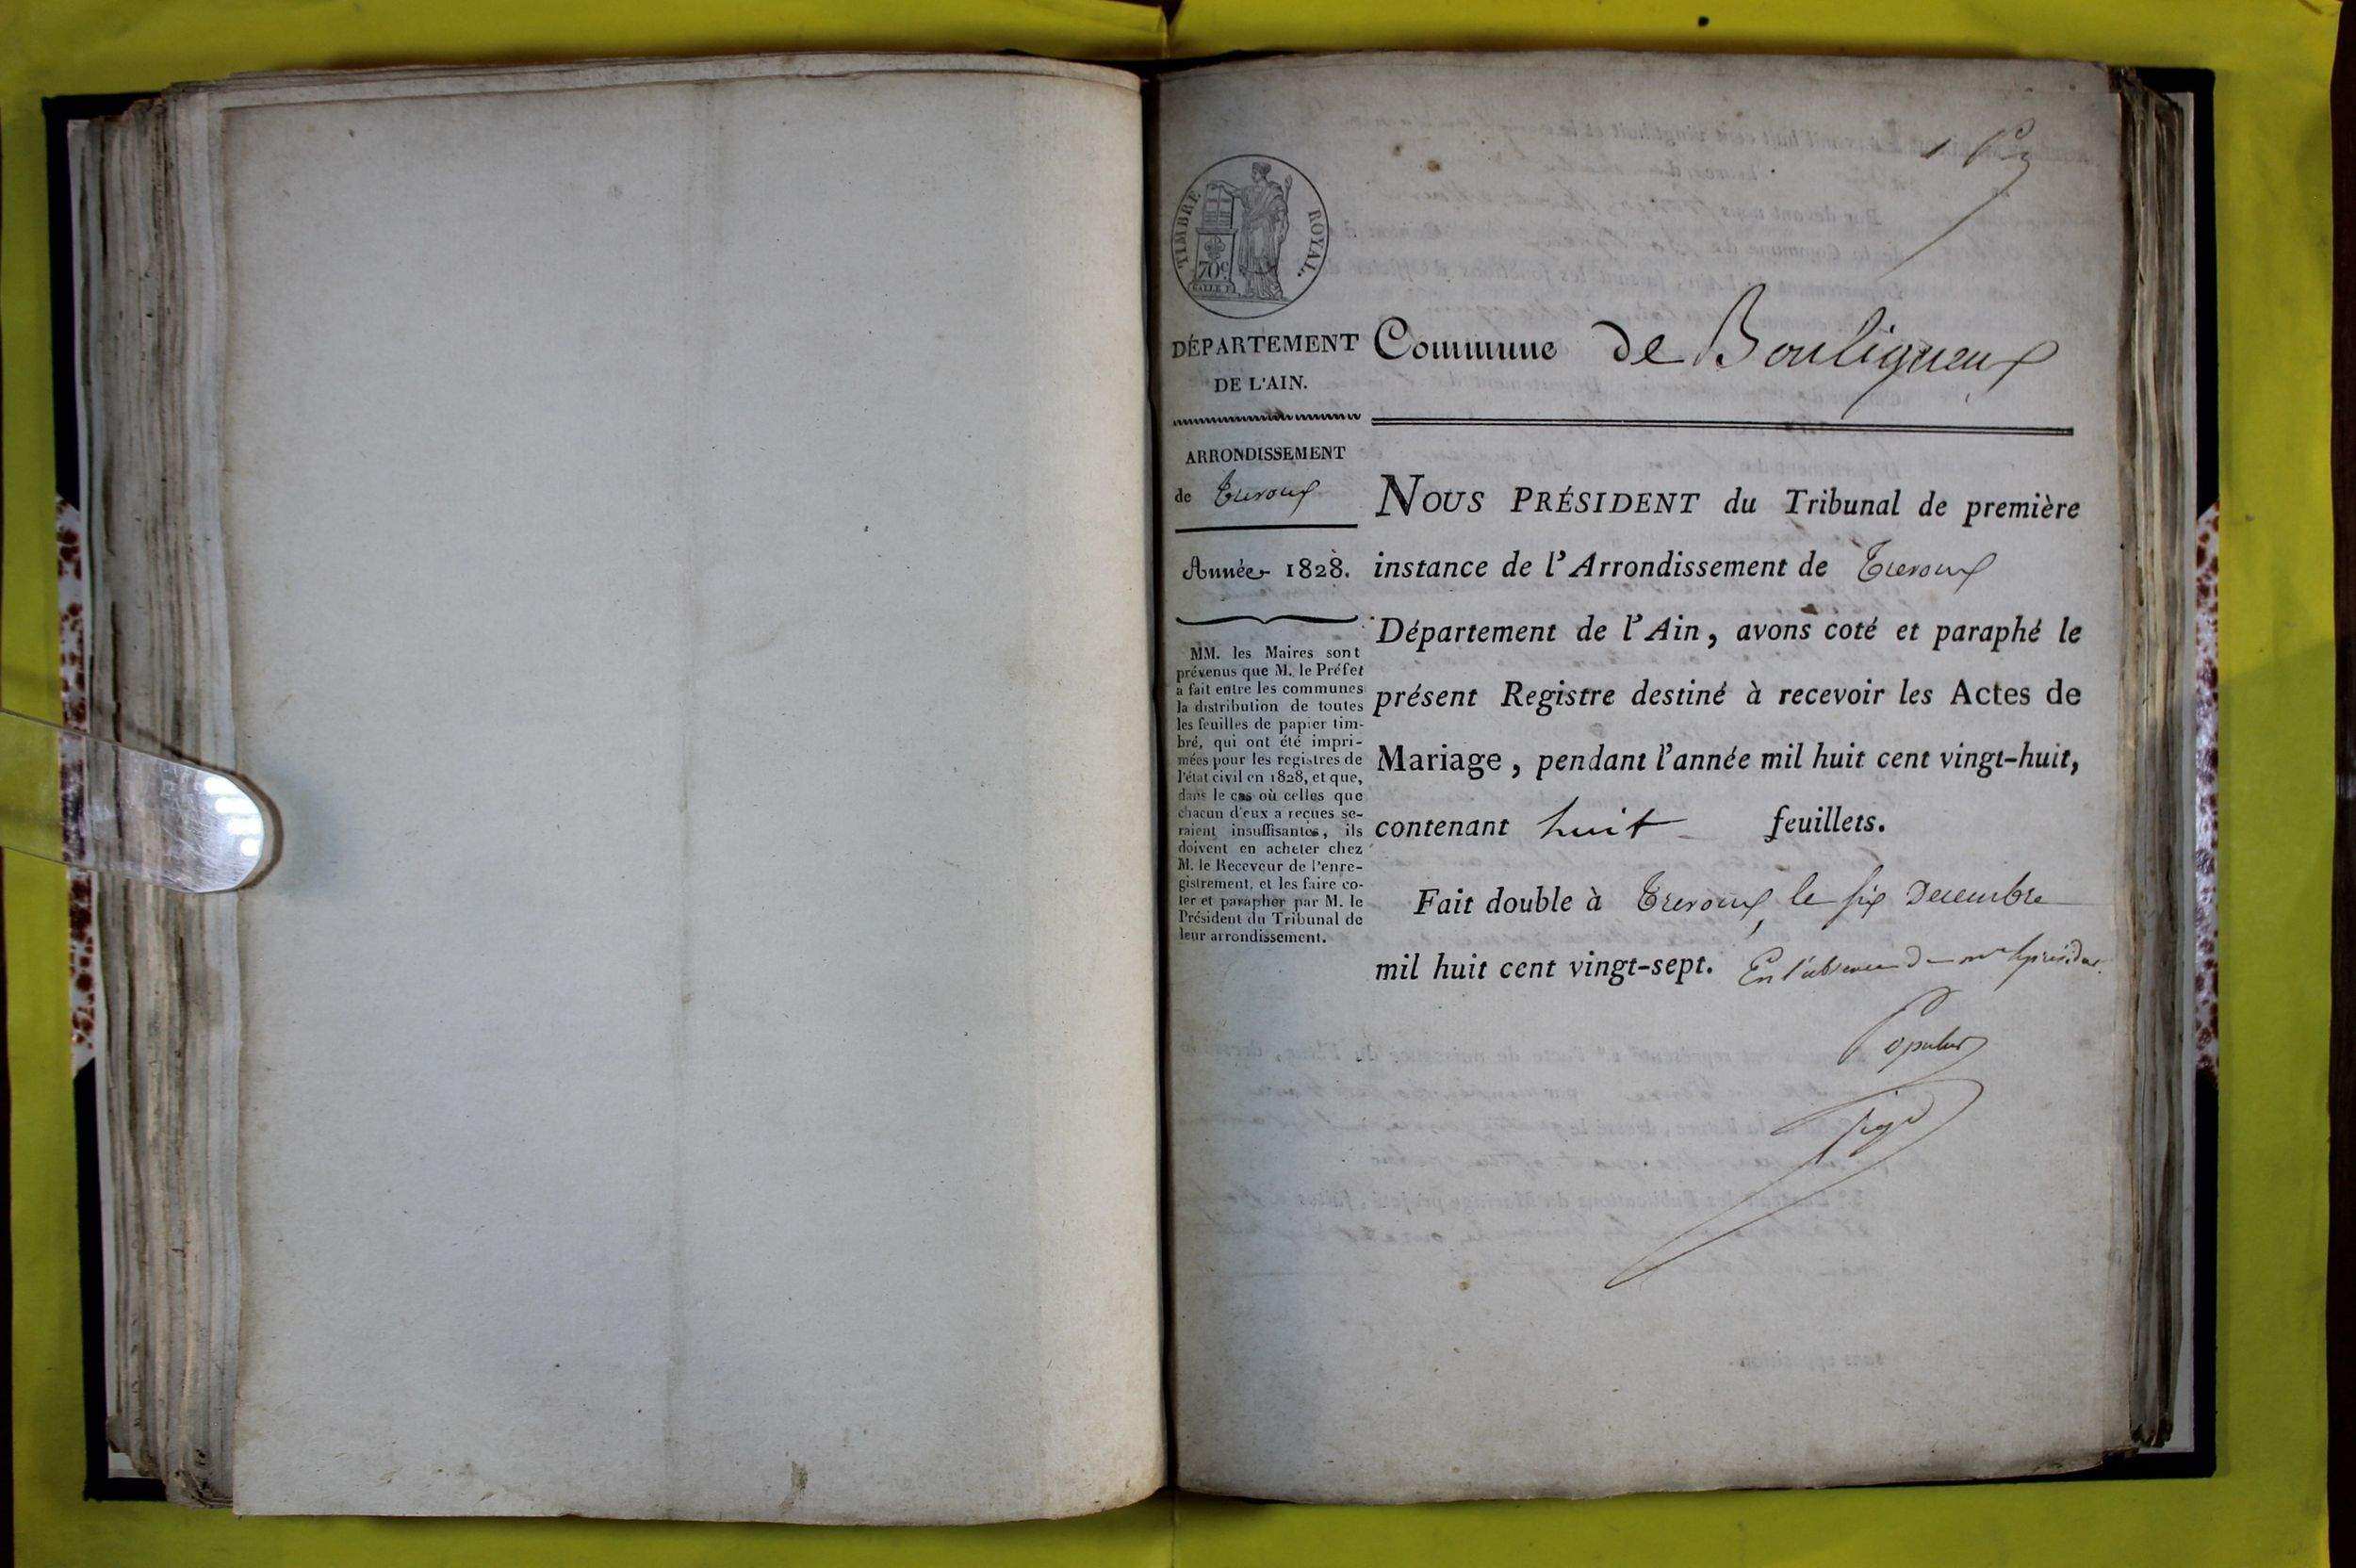 1
TIMBRE ROYAL.
70c
DÉPARTEMENT
DE L'AIN.
ARRONDISSEMENT
de Trevoux
Année 1828.
MM. les Maires sont
prévenus que M. le Préfet
a fait entre les communes
la distribution de toutes
les feuilles de papier tim-
bré, qui ont été impri-
mées pour les registres de
l'état civil en 1828, et que,
dans le cas où celles que
chacun d'eux a reçues se-
raient insuffisantes, ils
doivent en acheter chez
M. le Receveur de l'enre-
gistrement, et les faire co-
ter et parapher par M. le
Président du Tribunal de
leur arrondissement.
Commune de Bouligneux
NOUS PRÉSIDENT du Tribunal de première
instance de l'Arrondissement de Trevoux
Département de l'Ain, avons coté et paraphé le
présent Registre destiné à recevoir les Actes de
Mariage, pendant l'année mil huit cent vingt-huit,
contenant huit feuillets.
Fait double à Trevoux, le six Decembre
mil huit cent vingt-sept. En l'absence de mr le présidt.
Populus
juge